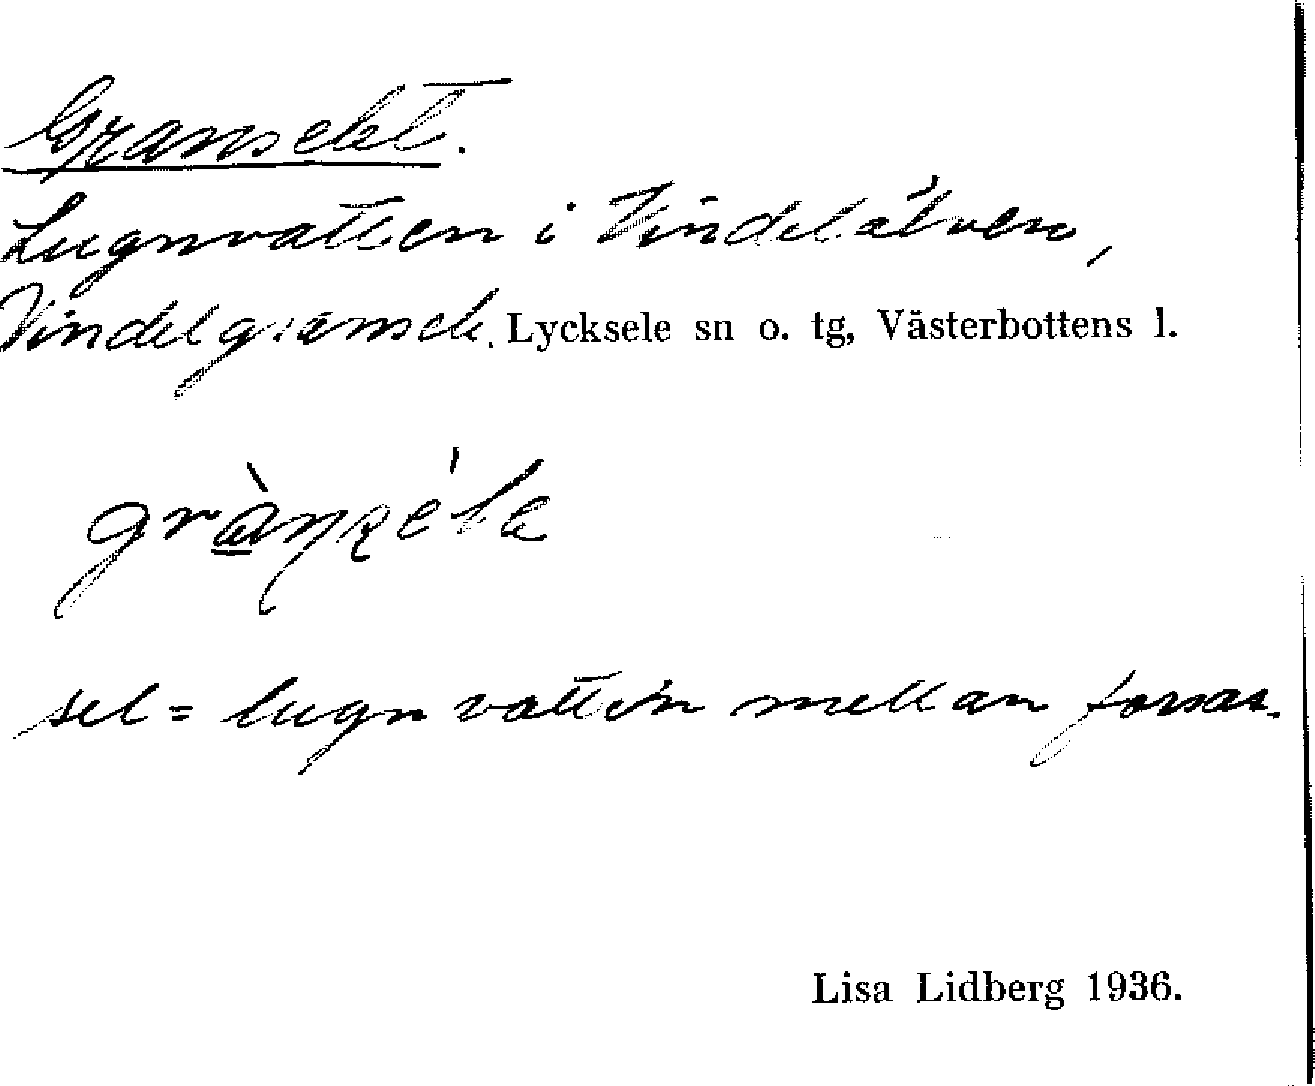 Granselet.
Lugnvatten i Vindelälven,
Vindelgransele. Lycksele sn o. tg, Västerbottens l.
sel = lugnvatten mellan forsar.
Lisa Lidberg 1936.